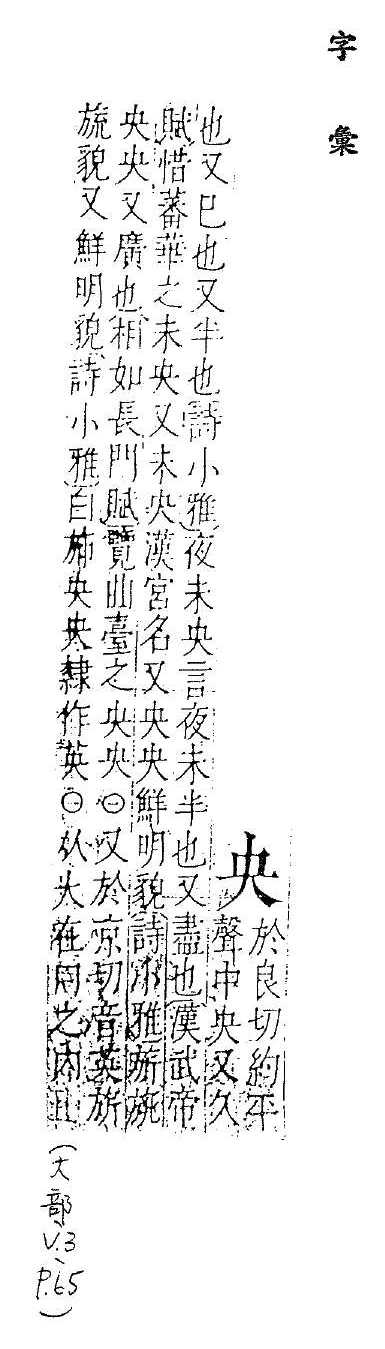 字彙
央
於良切約平
聲中央又久
也又巳也又半也詩小雅夜未央言夜未半也又盡也漢武帝
賦惜蕃華之未央又未央漢宮名又央央鮮明貌詩小雅旂旐
央央又廣也相如長門賦覽曲臺之央央○又於京切音英旂
旐貌又鮮明貌詩小雅白斾央央隸作英○从大在冂之內且
(大部、V.3、P.65)